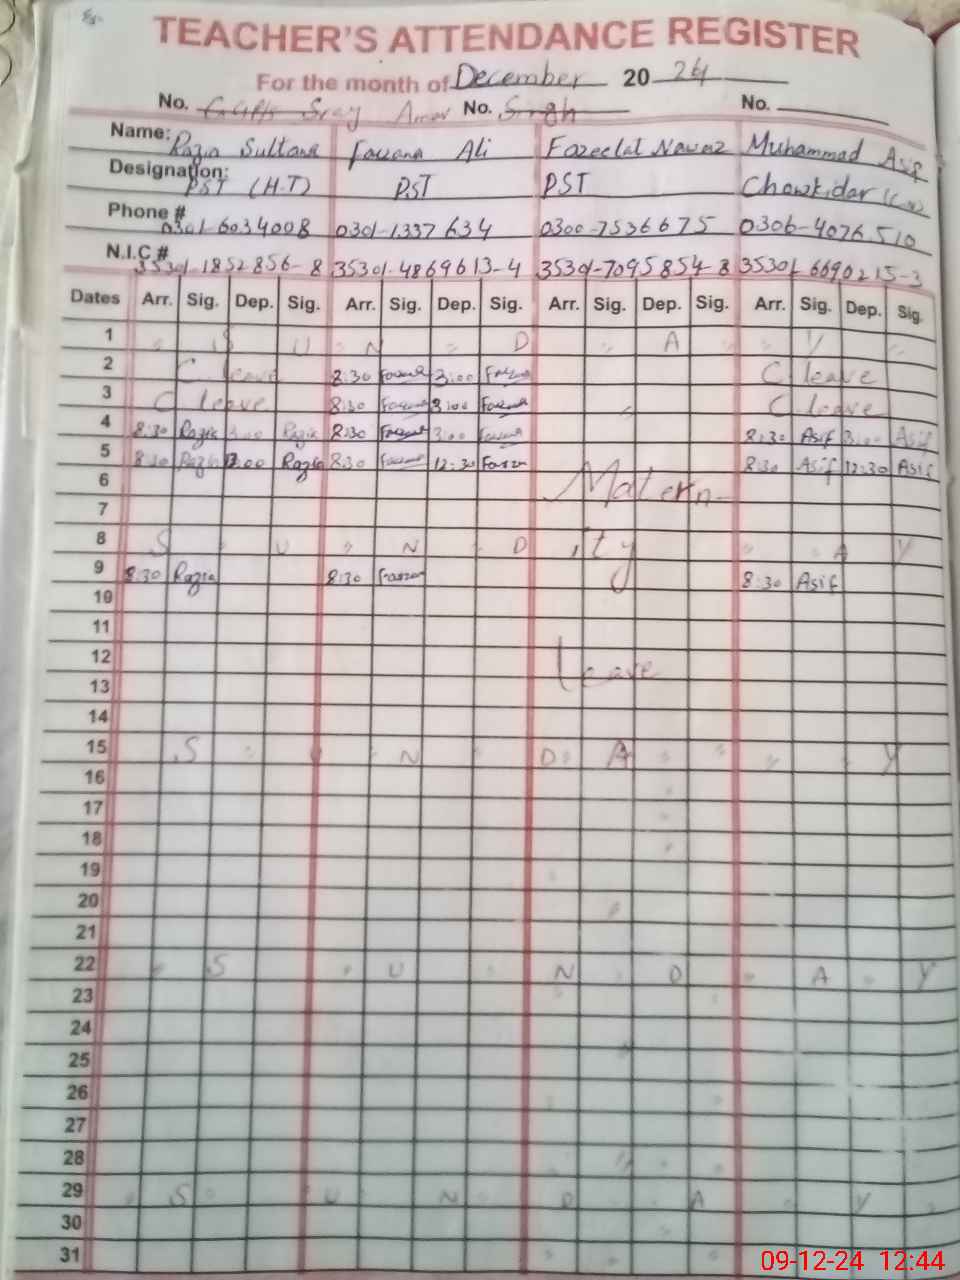 TEACHER'S ATTENDANCE REGISTER
For the month of December 20 24
No. GGPS Sray Amar No. Singh No.
Name: Razia Sultana Farzana Ali Fazeelat Nawaz Muhammad Asif
Designation: PST (H.T) PST PST Chowkidar
Phone # 0301-6034008 0301-1337634 0300-7536675 0306-4076510
N.I.C.# 35301-1852856-8 35301-4869613-4 35301-7095854-8 35301-6690215-3
Dates Arr. Sig. Dep. Sig. Arr. Sig. Dep. Sig. Arr. Sig. Dep. Sig. Arr. Sig. Dep. Sig.
1 S U N D A Y
2 C. leave 8:30 Farzana 3:00 Farzana C. leave
3 C leave 8:30 Farzana 3:00 Farzana C. leave
4 8:30 Razia 3:00 Razia 8:30 Farzana 3:00 Farzana 8:30 Asif 3:00 Asif
5 8:30 Razia Razia 8:30 Farzana 12:30 Farzana 8:30 Asif 12:30 Asif
6 Matern-
7
8 S U N D ity A Y
9 8:30 Razia 8:30 Farzana 8:30 Asif
10
11
12 Leave
13
14
15 S U N D A Y
16
17
18
19
20
21
22 S U N D A Y
23
24
25
26
27
28
29 S U N D A Y
30
31
09-12-24 12:44